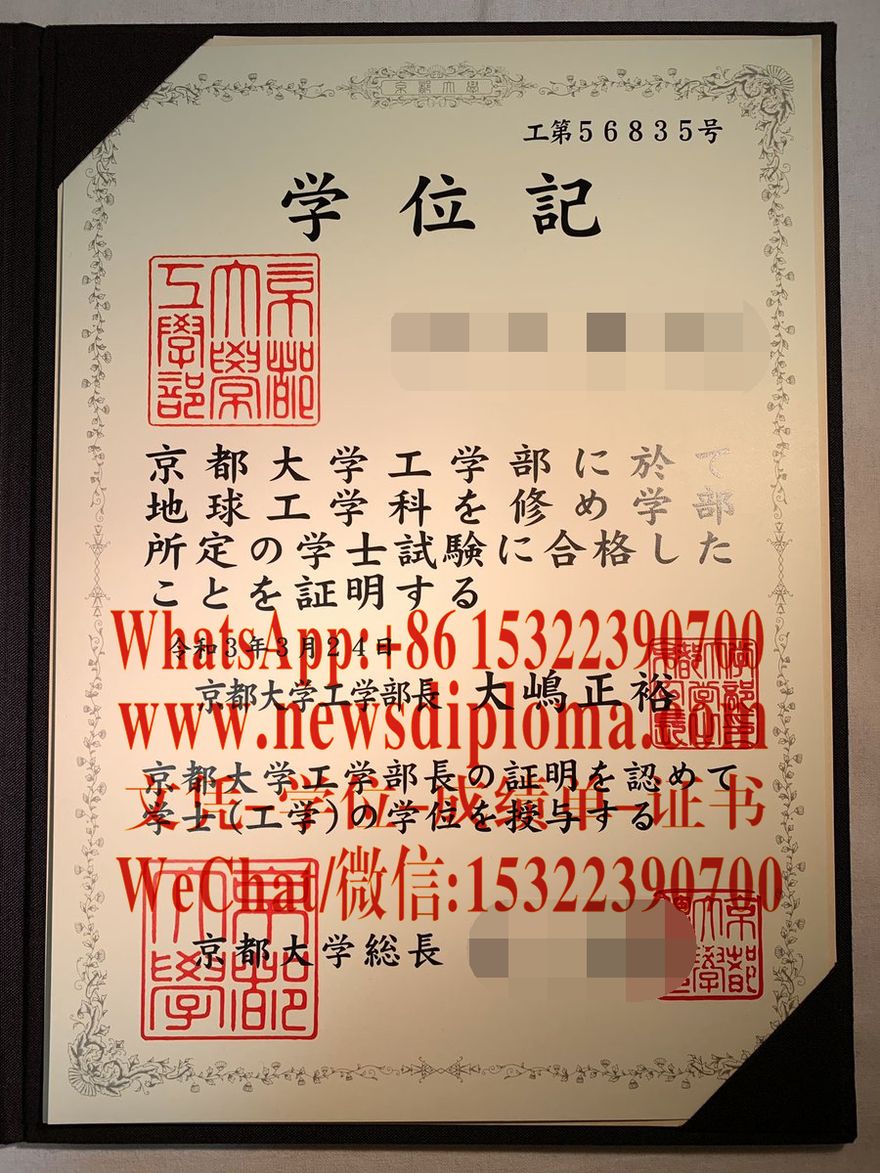 京都大學
工第56835号
学位記
京都大學工學部
京都大学工学部に於て
地球工学科を修め学部
所定の学士試験に合格した
ことを証明する
WhatsApp:+86 15322390700
令和3年3月24日
京都大学工学部長 大嶋正裕
www.newsdiploma.com
京都大学工学部長の証明を認めて
文凭–学位–成绩单–证书
学士(工学)の学位を授与する
WeChat/微信:15322390700
京都大學
京都大学総長